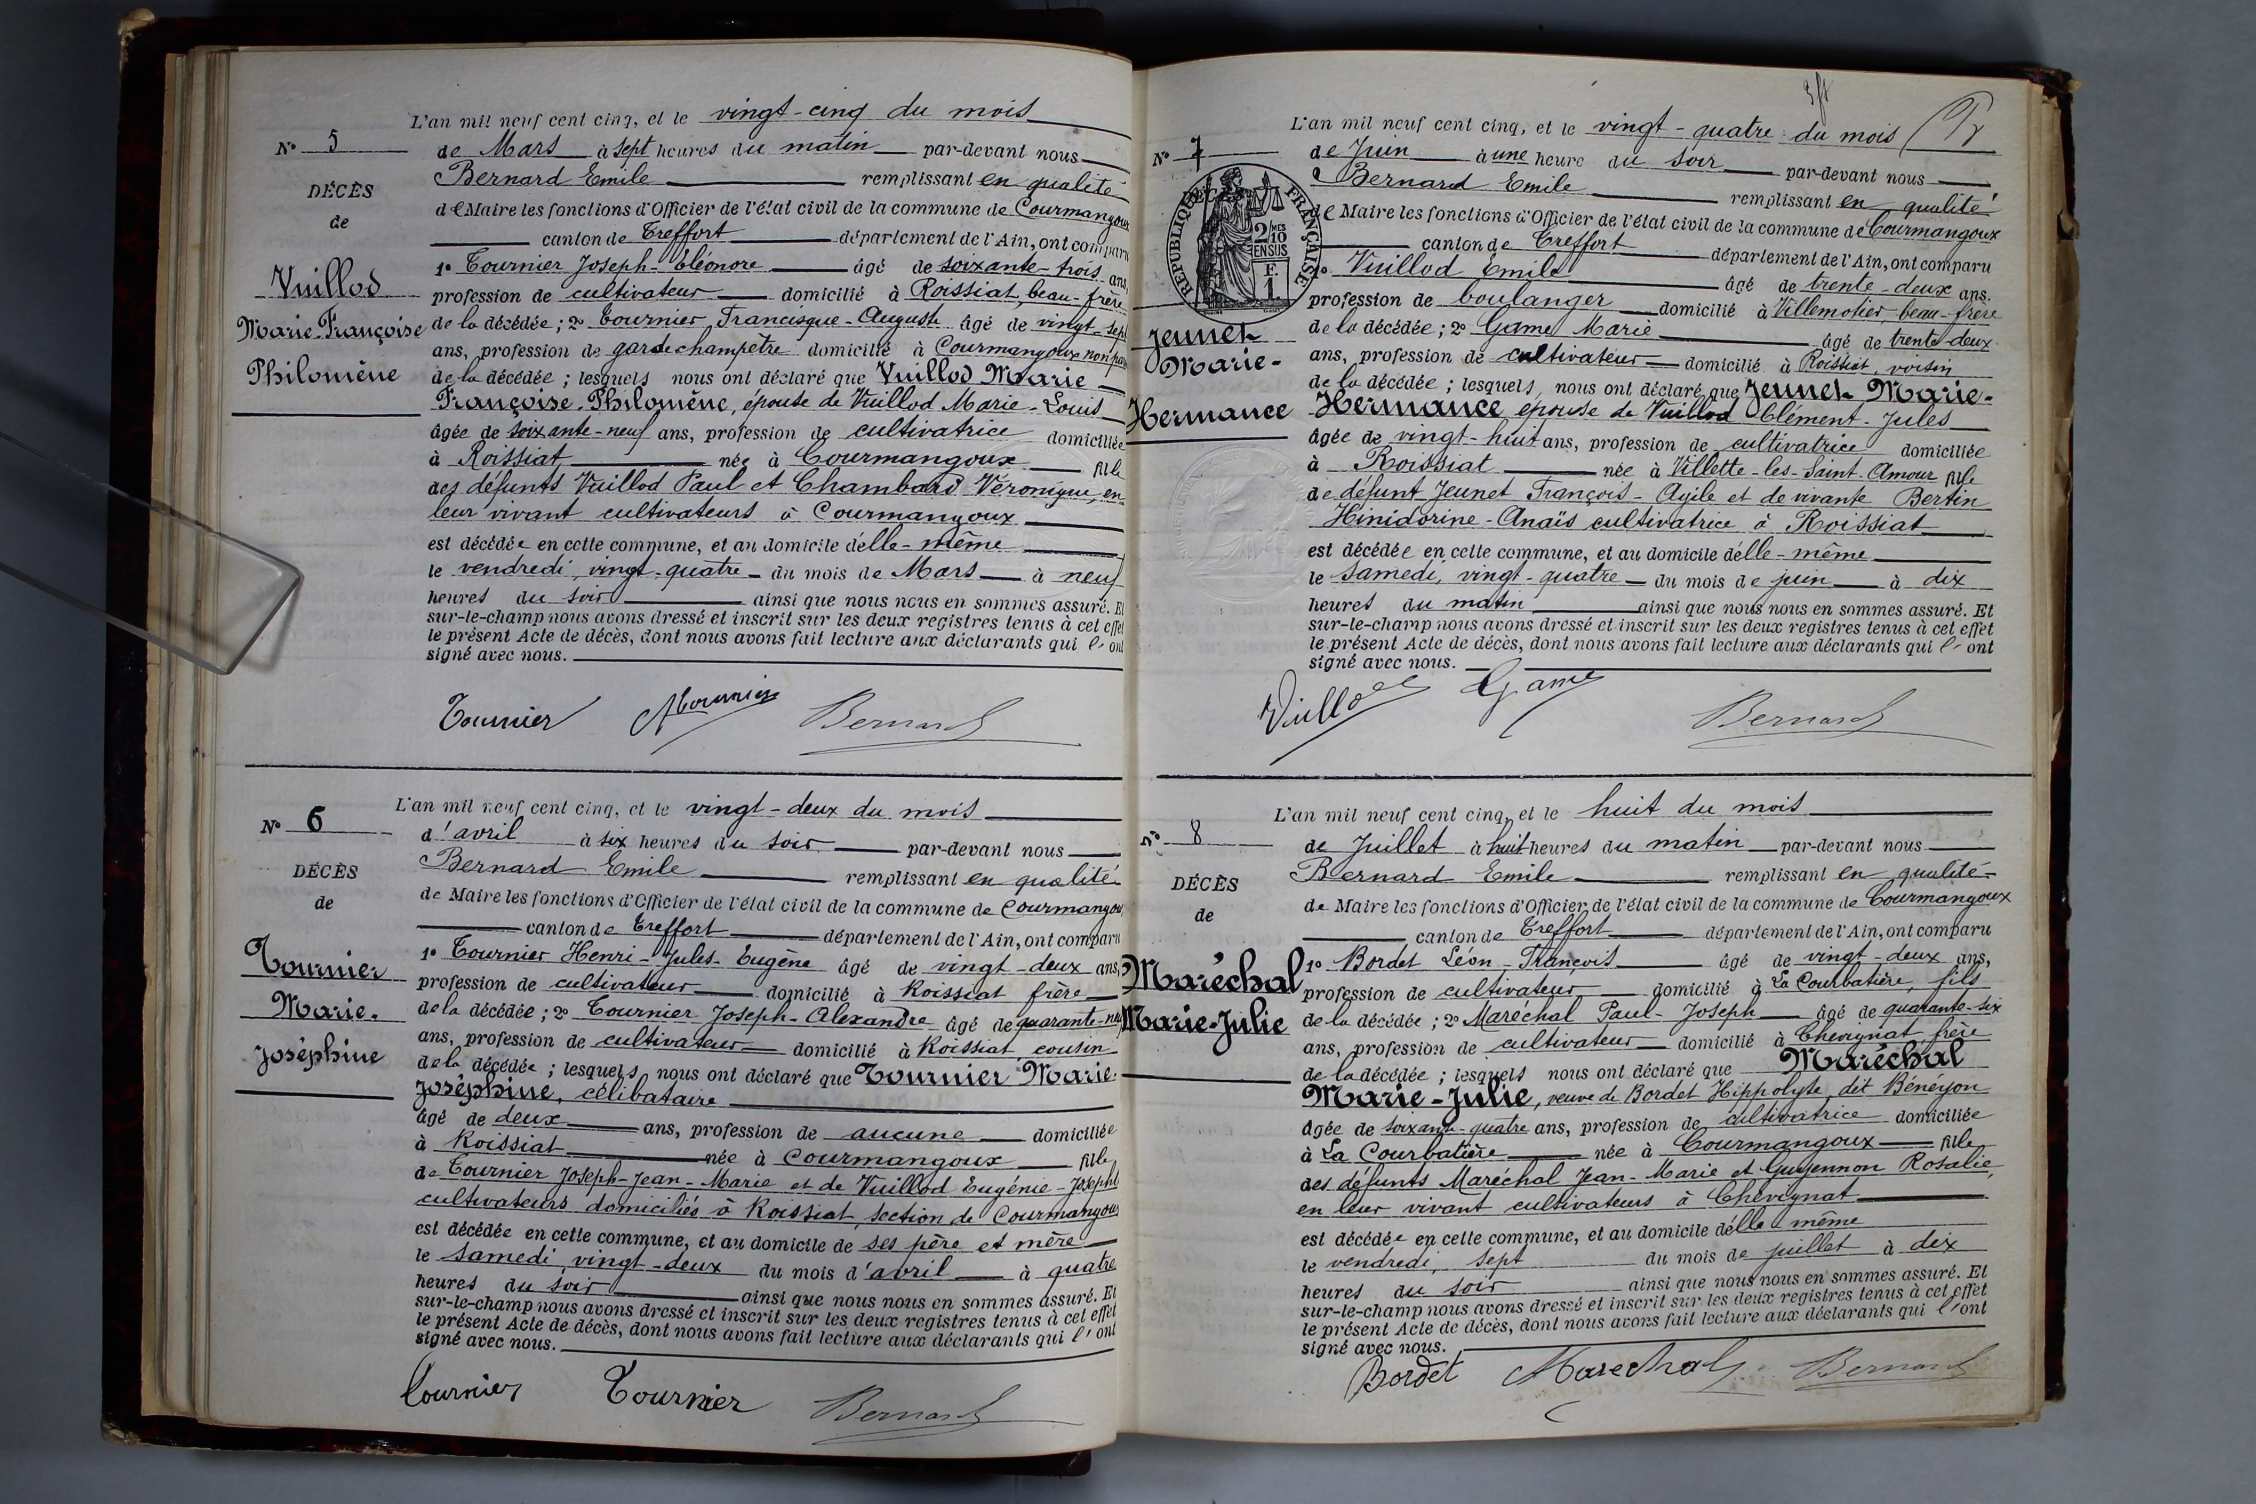 N° 5
DÉCÈS
de
Vuillod
Marie-Françoise
Philomène
L'an mil neuf cent cinq, et le vingt-cinq du mois
de Mars à sept heures du matin par-devant nous
Bernard Emile remplissant en qualité
de Maire les fonctions d'Officier de l'état civil de la commune de Courmangoux
canton de Treffort département de l'Ain, ont comparu
1° Tournier Joseph-Eléonore âgé de soixante-trois ans,
profession de cultivateur domicilié à Roissiat, beau-frère
de la décédée ; 2° Tournier Francisque-Auguste âgé de vingt-sept
ans, profession de garde champêtre domicilié à Courmangoux non parent
de la décédée ; lesquels nous ont déclaré que Vuillod Marie
Françoise-Philomène, épouse de Vuillod Marie-Louis
âgée de soixante-neuf ans, profession de cultivatrice domiciliée
à Roissiat née à Courmangoux fille
des défunts Vuillod Paul et Chambard Véronique, en
leur vivant cultivateurs à Courmangoux
est décédée en cette commune, et au domicile d'elle-même
le vendredi, vingt-quatre du mois de Mars à neuf
heures du soir ainsi que nous nous en sommes assuré. Et
sur-le-champ nous avons dressé et inscrit sur les deux registres tenus à cet effet
le présent Acte de décès, dont nous avons fait lecture aux déclarants qui l'ont
signé avec nous.
Tournier Tournier Bernard
N° 6
DÉCÈS
de
Tournier
Marie-
Joséphine
L'an mil neuf cent cinq, et le vingt-deux du mois
d'avril à six heures du soir par-devant nous
Bernard Emile remplissant en qualité
de Maire les fonctions d'Officier de l'état civil de la commune de Courmangoux
canton de Treffort département de l'Ain, ont comparu
1° Tournier Henri-Jules-Eugène âgé de vingt-deux ans,
profession de cultivateur domicilié à Roissiat frère
de la décédée ; 2° Tournier Joseph-Alexandre âgé de quarante-neuf
ans, profession de cultivateur domicilié à Roissiat, cousin
de la décédée ; lesquels nous ont déclaré que Tournier Marie-
Joséphine, célibataire
âgé de deux ans, profession de aucune domiciliée
à Roissiat née à Courmangoux fille
de Tournier Joseph-Jean-Marie et de Vuillod Eugénie-Joseph
cultivateurs domiciliés à Roissiat, section de Courmangoux
est décédée en cette commune, et au domicile de ses père et mère
le samedi, vingt-deux du mois d'avril à quatre
heures du soir ainsi que nous nous en sommes assuré. Et
sur-le-champ nous avons dressé et inscrit sur les deux registres tenus à cet effet
le présent Acte de décès, dont nous avons fait lecture aux déclarants qui l'ont
signé avec nous.
Tournier Tournier Bernard
N° 7
RÉPUBLIQUE FRANÇAISE
2/10 MES
EN SUS
F.
1
Jeunet
Marie-
Hermance
L'an mil neuf cent cinq, et le vingt-quatre du mois
de Juin à une heure du soir par-devant nous
Bernard Emile remplissant en qualité
de Maire les fonctions d'Officier de l'état civil de la commune de Courmangoux
canton de Treffort département de l'Ain, ont comparu
1° Vuillod Emile âgé de trente-deux ans.
profession de boulanger domicilié à Villemotier, beau-frère
de la décédée ; 2° Game Marie âgé de trente-deux
ans, profession de cultivateur domicilié à Roissiat, voisin
de la décédée ; lesquels nous ont déclaré que Jeunet Marie-
Hermance épouse de Vuillod Clément-Jules
âgée de vingt-huit ans, profession de cultivatrice domiciliée
à Roissiat née à Villette-les-Saint-Amour fille
de défunt Jeunet François-Agile et de vivante Bertin
Hinidorine-Anaïs cultivatrice à Roissiat
est décédée en cette commune, et au domicile d'elle-même
le samedi, vingt-quatre du mois de juin à dix
heures du matin ainsi que nous nous en sommes assuré. Et
sur-le-champ nous avons dressé et inscrit sur les deux registres tenus à cet effet
le présent Acte de décès, dont nous avons fait lecture aux déclarants qui l'ont
signé avec nous.
Vuillod Game Bernard
N° 8
DÉCÈS
de
Maréchal
Marie-Julie
L'an mil neuf cent cinq, et le huit du mois
de Juillet à huit heures du matin par-devant nous
Bernard Emile remplissant en qualité
de Maire les fonctions d'Officier de l'état civil de la commune de Courmangoux
canton de Treffort département de l'Ain, ont comparu
1° Bordet Léon-François âgé de vingt-deux ans,
profession de cultivateur domicilié à La Courbatière, fils
de la décédée ; 2° Maréchal Paul-Joseph âgé de quarante-six
ans, profession de cultivateur domicilié à Chevignat, frère
de la décédée ; lesquels nous ont déclaré que Maréchal
Marie-Julie, veuve de Bordet Hippolyte, dit Bénéyon
âgée de soixante-quatre ans, profession de cultivatrice domiciliée
à La Courbatière née à Courmangoux fille
des défunts Maréchal Jean-Marie et Guyennon Rosalie,
en leur vivant cultivateurs à Chevignat
est décédée en cette commune, et au domicile d'elle même
le vendredi, sept du mois de juillet à dix
heures du soir ainsi que nous nous en sommes assuré. Et
sur-le-champ nous avons dressé et inscrit sur les deux registres tenus à cet effet
le présent Acte de décès, dont nous avons fait lecture aux déclarants qui l'ont
signé avec nous.
Bordet Marechal Bernard